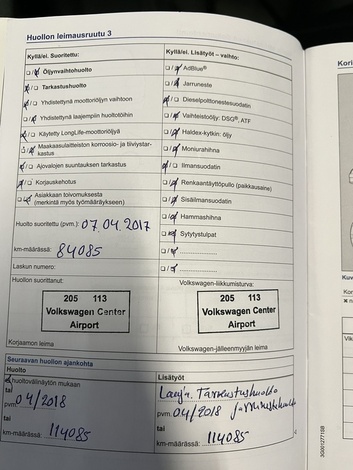 Huollon leimausruutu 3
Kyllä/ei. Suoritettu:
Öljynvaihtohuolto
Tarkastushuolto
Yhdistettynä moottoriöljyn vaihtoon
Yhdistettynä laajempiin huoltotöihin
Käytetty LongLife-moottoriöljyä
Maakaasulaitteiston korroosio- ja tiiviystar-
kastus
Ajovalojen suuntauksen tarkastus
Korjauskehotus
Asiakkaan toivomuksesta
(merkintä myös työmääräykseen)
Huolto suoritettu (pvm.): 07.04.2017
km-määrässä: 84085
Laskun numero:
Huollon suorittanut:
205 113
Volkswagen Center
Airport
Korjaamon leima
Kyllä/ei. Lisätyöt – vaihto:
AdBlue®
Jarruneste
Dieselpolttonestesuodatin
Vaihteistoöljy: DSG®, ATF
Haldex-kytkin: öljy
Moniurahihna
Ilmansuodatin
Renkaantäyttöpullo (paikkausaine)
Sisäilmansuodatin
Hammashihna
Sytytystulpat
Volkswagen-liikkumisturva:
205 113
Volkswagen Center
Airport
Volkswagen-jälleenmyyjän leima
Seuraavan huollon ajankohta
Huolto
huoltovälinäytön mukaan
tai
pvm. 04/2018
tai
km-määrässä: 114085
Lisätyöt
Laaj. Tarkastushuolto
pvm. 04/2018 jarrunestehuolto
tai
km-määrässä: 114085
Kor